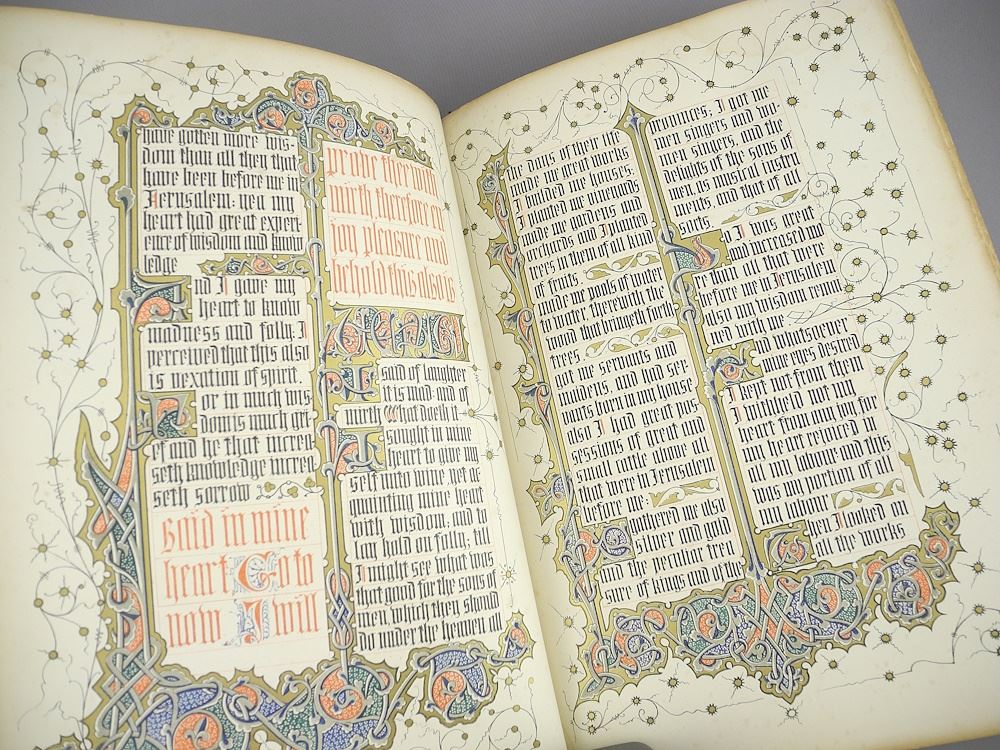 have gotten more wis-
dom than all then that
have been before me in
Jerusalem: yea my
heart had great exper
ence of wisdom and know
ledge
And I gave my
heart to know
madness and folly. I
perceived that this also
is vexation of spirit.
For in much wis
dom is much gri
ef and he that increa
seth knowledge increa
seth sorrow
Said in mine
heart Go to
now I will
prove thee with
mirth therefore en
joy pleasure and
behold this also is
I said of laughter
it is mad: and of
mirth What doeth it
I sought in mine
heart to give my
self unto wine yet ac
quainting mine heart
with wisdom; and to
lay hold on folly; till
I might see what was
that good for the sons of
men, which they should
do under the heaven all
the days of their life
I made me great works
I builded me houses,
I planted me vineyards
I made me gardens and
orchards and I planted
trees in them of all kind
of fruits.
I made me pools of water
to water therewith the
wood that bringeth forth
trees
I got me servants and
maidens, and had ser
vants born in my house
also I had great pos
sessions of great and
small cattle above all
that were in Jerusalem
before me
I gathered me also
silver and gold
and the peculiar trea
sure of kings and of the
provinces; I gat me
men singers and wo-
men singers, and the
delights of the sons of
men, as musical instru
ments, and that of all
sorts
So I was great
and increased mo
re than all that were
before me in Jerusalem
also my wisdom remai
ned with me
And whatsoever
mine eyes desired
I kept not from them
I withheld not my
heart from any joy for
my heart rejoiced in
all my labour and this
was my portion of all
my labour
Then I looked on
all the works